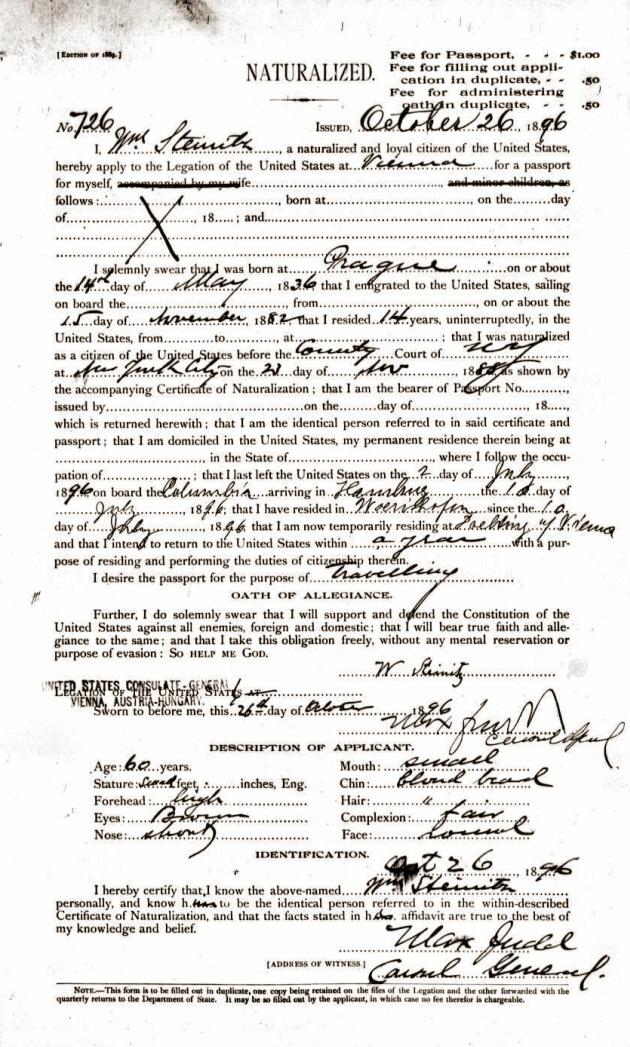 [EDITION OF 1889.]
Fee for Passport, - - - $1.00
Fee for filling out appli-
cation in duplicate, - - .50
Fee for administering
oath in duplicate, - - .50
NATURALIZED.
No. 726 ISSUED, October 26, 1896
I, Wm Steinitz, a naturalized and loyal citizen of the United States,
hereby apply to the Legation of the United States at Vienna for a passport
for myself, accompanied by my wife and minor children, as
follows: X, born at on the day
of , 18 ; and
I solemnly swear that I was born at Prague on or about
the 14th day of May, 1836 that I emigrated to the United States, sailing
on board the , from , on or about the
15 day of November, 1882 that I resided 14 years, uninterruptedly, in the
United States, from to , at ; that I was naturalized
as a citizen of the United States before the County Court of NY
at New York City on the 23 day of Nov, 1888, as shown by
the accompanying Certificate of Naturalization; that I am the bearer of Passport No. ,
issued by on the day of , 18 ,
which is returned herewith; that I am the identical person referred to in said certificate and
passport; that I am domiciled in the United States, my permanent residence therein being at
, in the State of , where I follow the occu-
pation of ; that I last left the United States on the 2 day of July,
1896 on board the Columbia arriving in Hamburg the 10 day of
July, 1896; that I have resided in Woerishofen since the 10
day of July, 1896, that I am now temporarily residing at Vienna
and that I intend to return to the United States within a year with a pur-
pose of residing and performing the duties of citizenship therein.
I desire the passport for the purpose of travelling
OATH OF ALLEGIANCE.
Further, I do solemnly swear that I will support and defend the Constitution of the
United States against all enemies, foreign and domestic; that I will bear true faith and alle-
giance to the same; and that I take this obligation freely, without any mental reservation or
purpose of evasion: SO HELP ME GOD.
W Steinitz
UNITED STATES CONSULATE-GENERAL
LEGATION OF THE UNITED STATES at
VIENNA, AUSTRIA-HUNGARY.
Sworn to before me, this 26th day of October 1896
Max Judd
Consul General
DESCRIPTION OF APPLICANT.
Age: 60 years.
Mouth: small
Stature: feet, inches, Eng.
Chin: blond beard
Forehead: high
Hair: "
Eyes: Brown
Complexion: fair
Nose: short
Face: round
IDENTIFICATION.
Oct 26, 1896
I hereby certify that I know the above-named Wm Steinitz
personally, and know him to be the identical person referred to in the within-described
Certificate of Naturalization, and that the facts stated in his affidavit are true to the best of
my knowledge and belief.
Max Judd
[ADDRESS OF WITNESS.] Consul General.
NOTE.—This form is to be filled out in duplicate, one copy being retained on the files of the Legation and the other forwarded with the
quarterly returns to the Department of State. It may be so filled out by the applicant, in which case no fee therefor is chargeable.